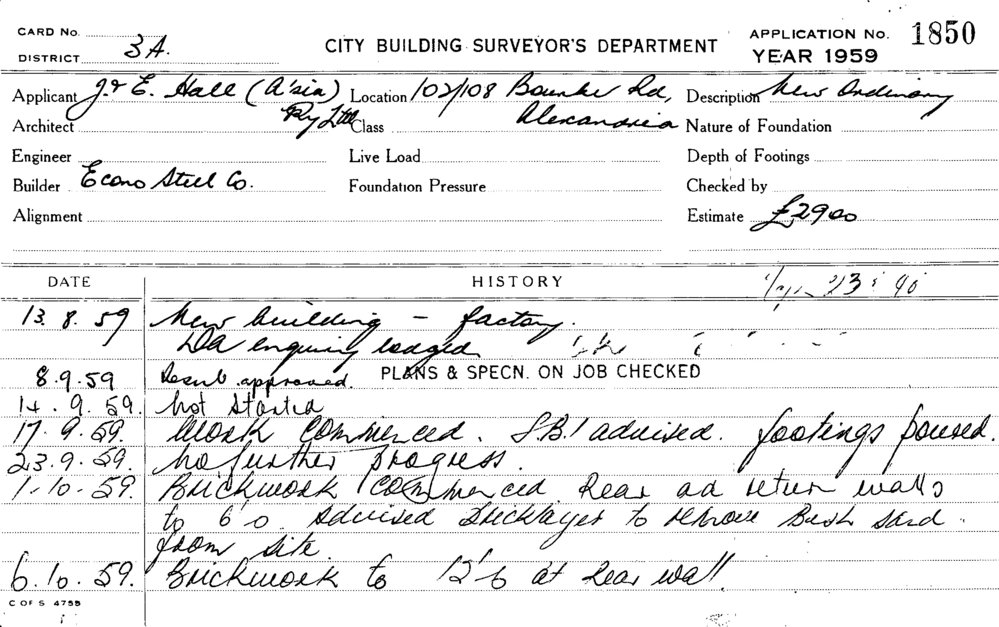 CARD No.
DISTRICT 3A.
CITY BUILDING SURVEYOR'S DEPARTMENT
APPLICATION No. 1850
YEAR 1959
Applicant J. & E. Hall (A'sia) Pty Ltd
Location 102/108 Bourke Rd, Alexandria
Description New Ordinary
Architect
Class
Nature of Foundation
Engineer
Live Load
Depth of Footings
Builder Econo Steel Co.
Foundation Pressure
Checked by
Alignment
Estimate £2900
DATE HISTORY
13.8.59 New building - factory.
DA enquiry lodged
8.9.59 Resub. approved. PLANS & SPECN. ON JOB CHECKED
14.9.59. Not started
17.9.59. Work commenced. S.B.I advised. footings poured.
23.9.59. No further progress.
1.10.59. Brickwork commenced Rear ad return walls
to 6'0 Advised Bricklayer to remove Bush sand
from site.
6.10.59. Brickwork to 12'6 at Rear wall
C OF S 4755